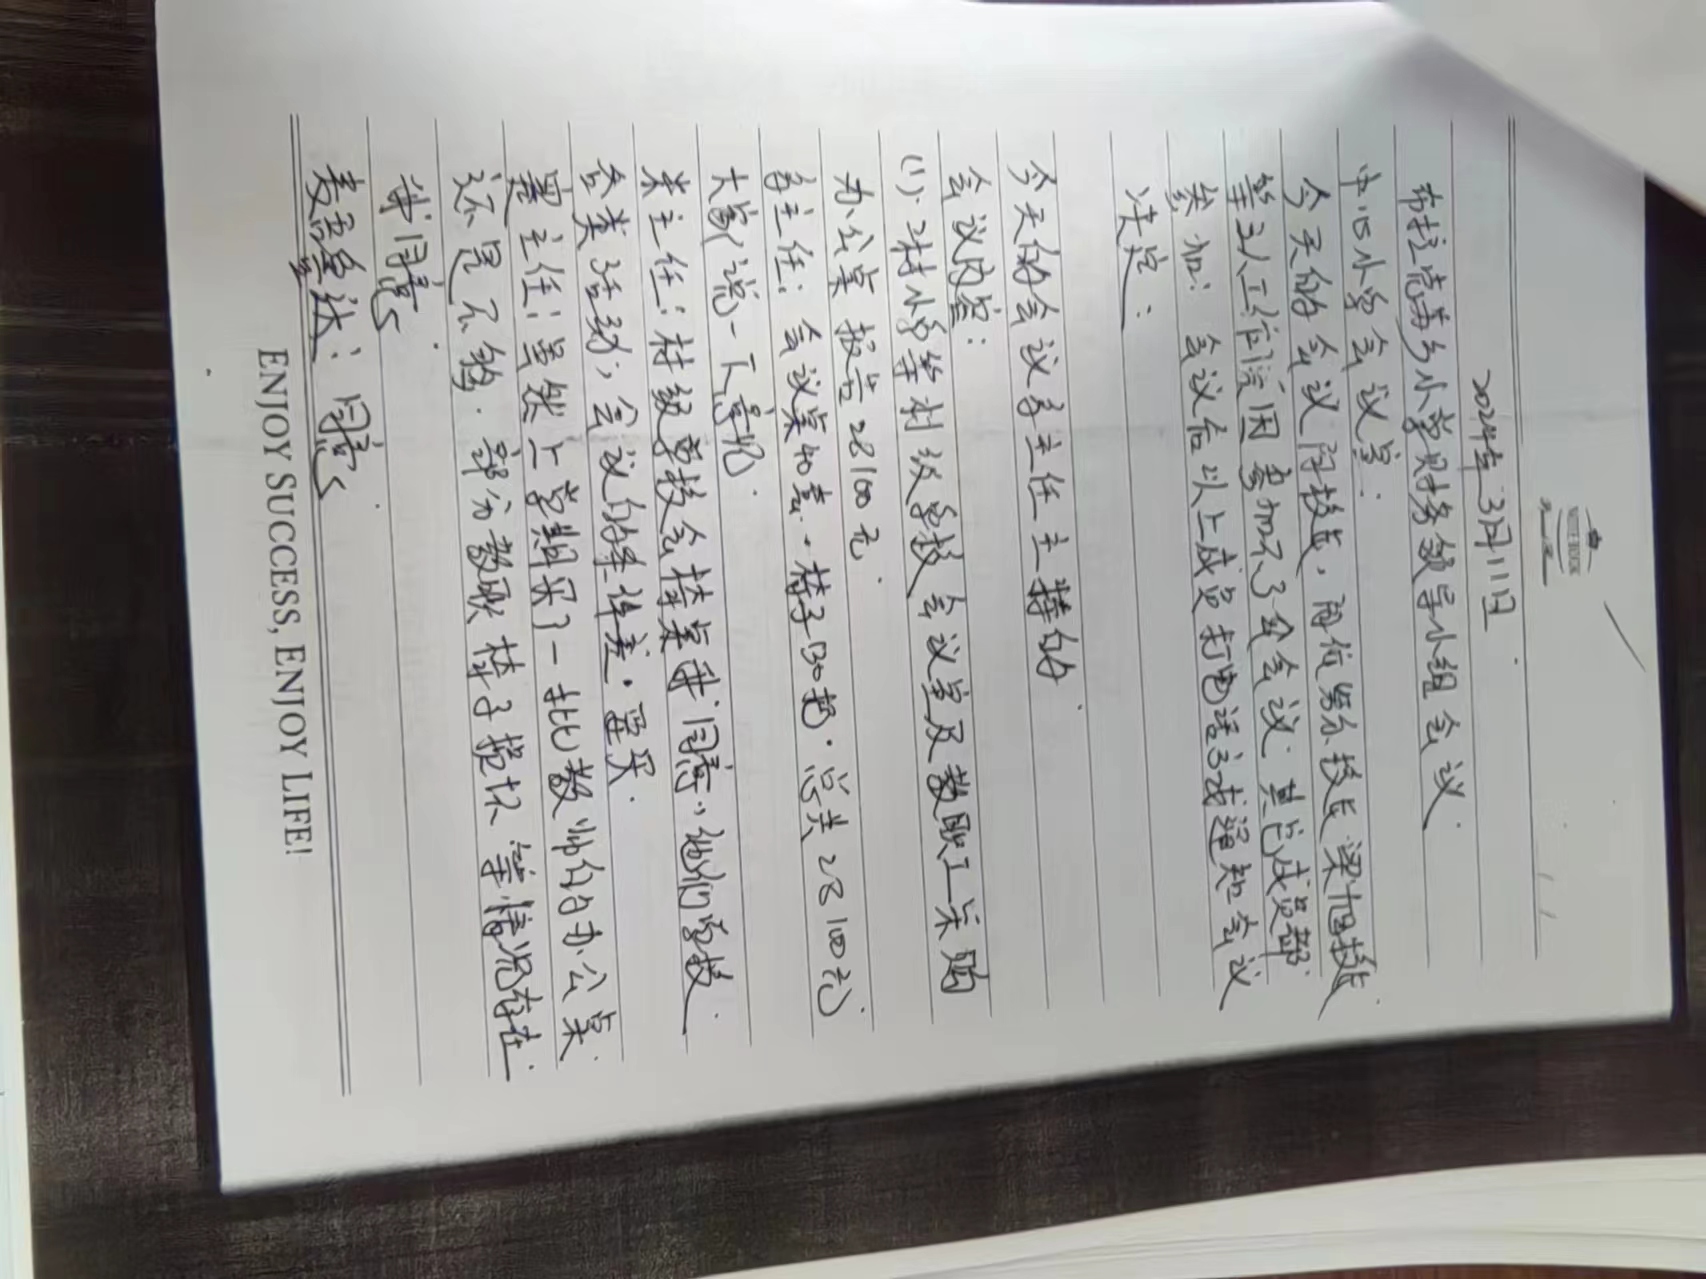 NOTE BOOK
2024年3月11日
布拉克苏乡小学财务领导小组会议
中心小学会议室:
今天的会议 闫校长,两位 校长 梁旭校长
等3人工作 原因参加不了 会议.其它成员都
参加;会议后以上成员打电话方式通知会议
决定:
今天的会议 主任主持的
会议内容:
(1).2村小学等村级学校会议室及教职工采购
办公桌报告28100元.
主任:会议桌40套.椅子130把.总共28100元
大家说一下意见.
主任:村级学校会椅桌我同意,他们学校
各类活动,会议的条件差.要买.
主任:虽然上学期买了一批教师的办公桌
还是不够.部分教职椅子损坏等情况存在.
我同意.
:同意
ENJOY SUCCESS, ENJOY LIFE!